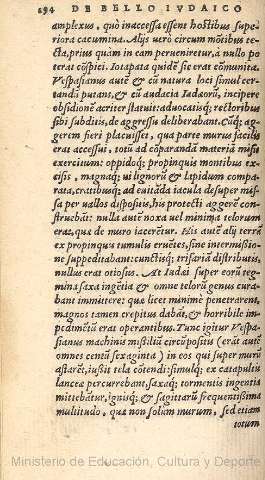 294 DE BELLO IVDAICO
amplexus, quò inaccessa essent hostibus supe⸗
riora cacumina. Alijs uerò circum mōtibus te⸗
cta, prius quàm in eam perueniretur, à nullo po
terat cōspici. Iotapata quidē sic erat cōmunita.
Vespasianus autē & cū natura loci simul cer⸗
tandū putans, & cū audacia Iudæorū, incipere
obsidionē acriter statuit: aduocatisq; rectoribus
sibi subditis, de aggressu deliberabat. Cūq; ag⸗
gerem fieri placuisset, qua parte murus facilis
erat accessu, totū ad cōparandā materiā misit
exercitum: oppidoq; propinquis montibus ex⸗
cisis, magnaq; ui lignorū & lapidum compa⸗
rata, cratibusq; ad euitāda iacula desuper mis⸗
sa per uallos dispositis, his protecti aggerē con⸗
struebāt: nulla autē noxa uel minima telorum
erat, quæ de muro iacerētur. Hi autē alij terrā
ex propinquis tumulis eruētes, sine intermissio⸗
ne suppeditabant: cunctisq; trifariā distributis,
nullus erat otiosus. At Iudæi super eorū teg⸗
mina saxa ingētia & omne telorū genus cura⸗
bant immittere: quæ licet minimè penetrarent,
magnos tamen crepitus dabāt, & horribile im⸗
pedimētū erat operantibus. Tunc igitur Vespa⸗
sianus machinis missiliū circūpositis (erāt autē
omnes centū sexaginta) in eos qui super murū
astarēt, iussit tela cōtendi: simulq; ex catapultis
lanceæ percurrebant, saxaq; tormentis ingentia
mittebātur, ignisq; & sagittarū frequentissima
multitudo, quæ non solùm murum, sed etiam
totum
Ministerio de Educación, Cultura y Deporte